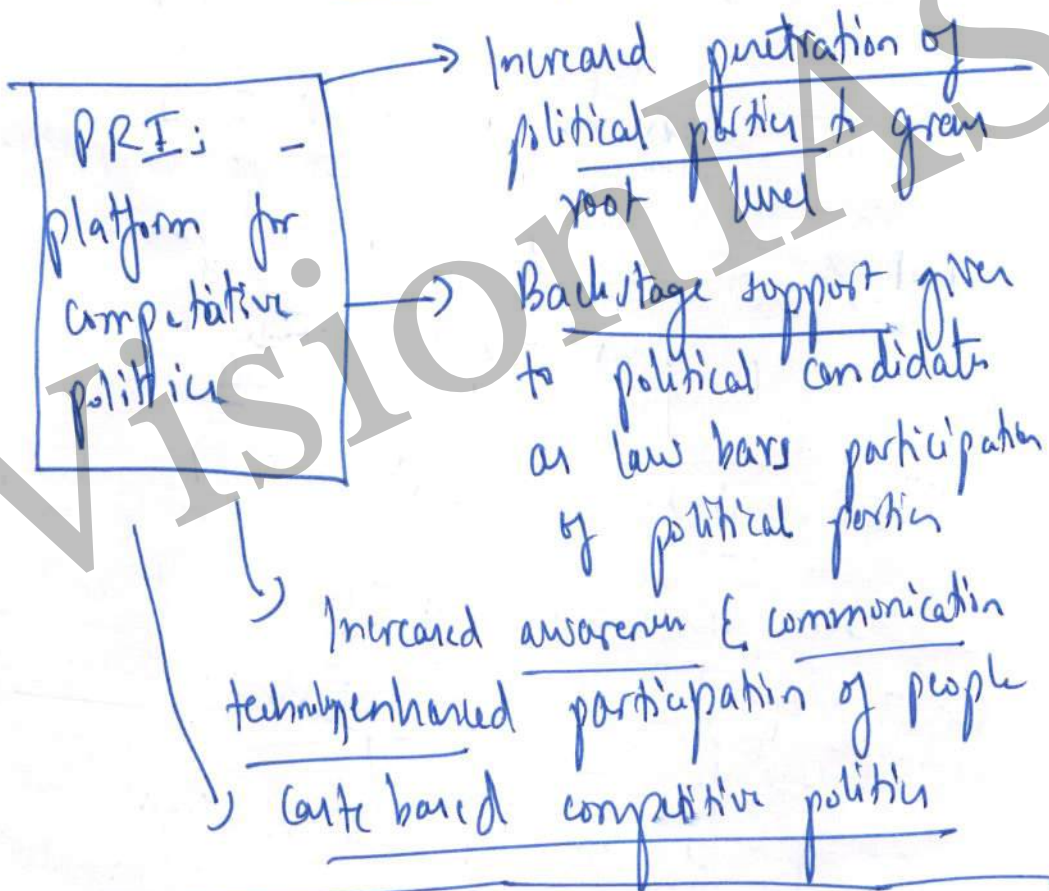 PRI; -
platform for
competative
politics
Increased penetration of
political parties to grass
root level
Backstage support given
to political candidates
as law bars participation
of political parties
Increased awareness & communication
technology enhanced participation of people
Caste based competitive politics
VisionIAS